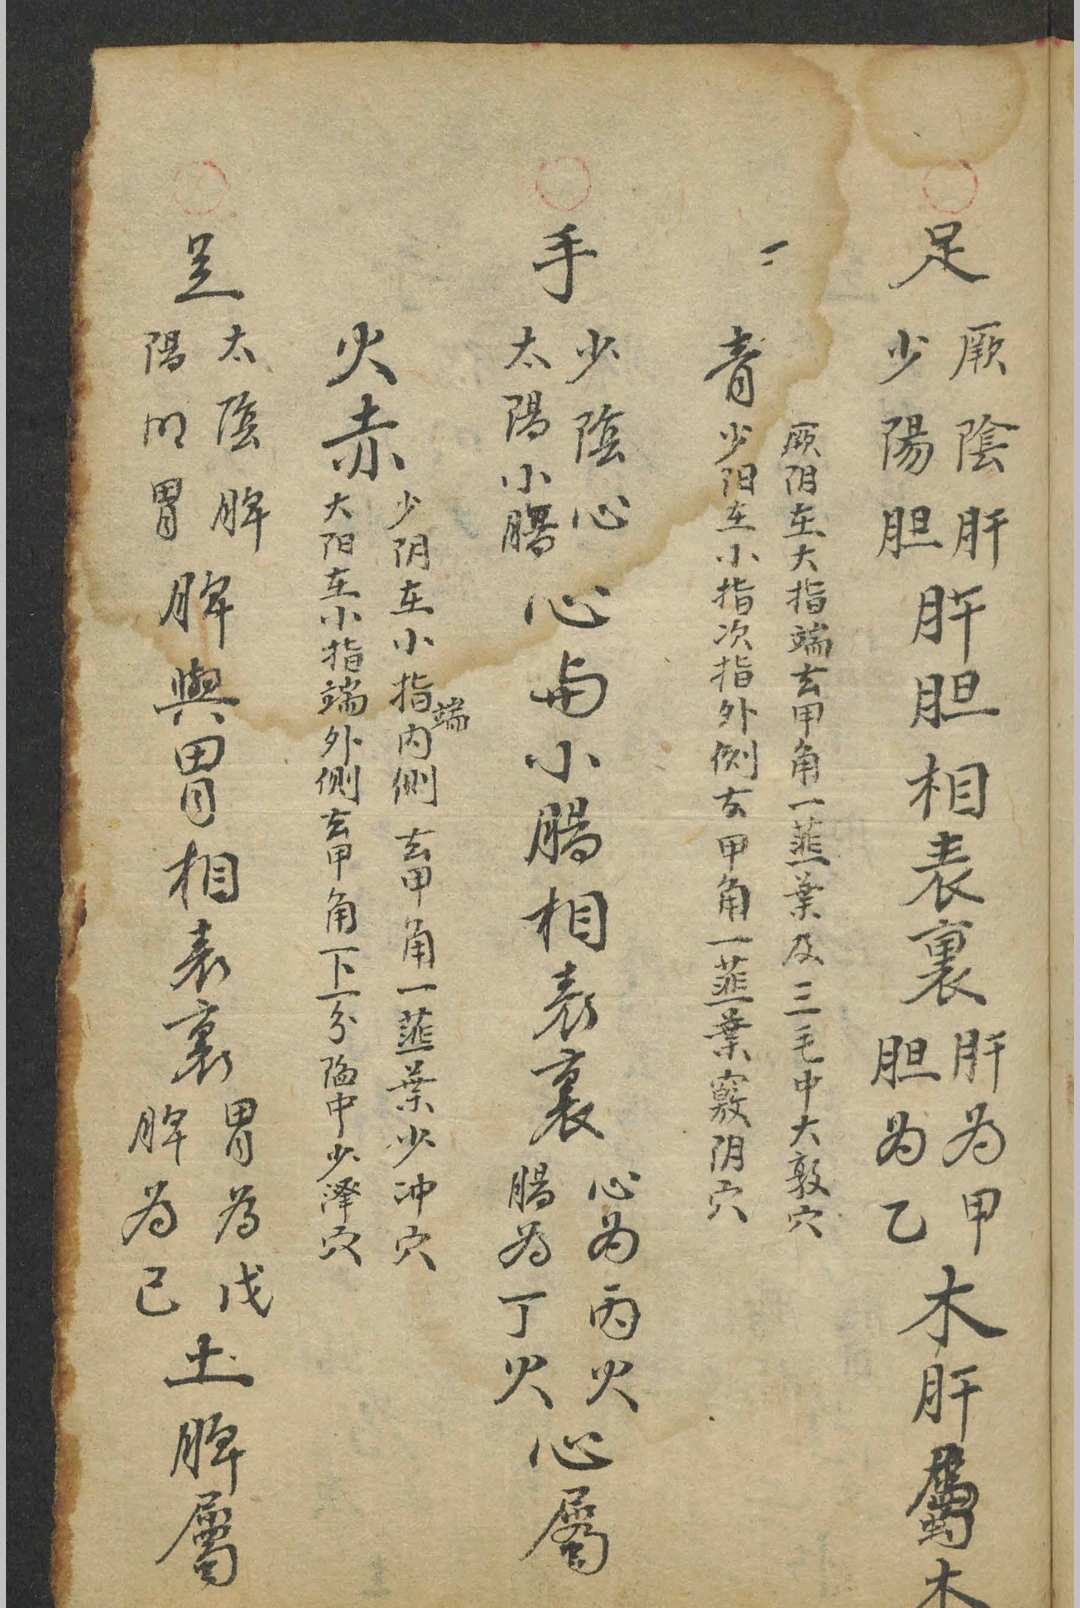 足
厥陰肝
少陽胆
肝胆相表裏
肝为甲
胆为乙
木肝屬木
青
厥阴在大指端去甲角一韮葉及三毛中大敦穴
少阳在小指次指外侧去甲角一韮葉竅阴穴
手
少陰心
太陽小腸
心与小腸相表裏
心为丙火
腸为丁火
心屬
火赤
少阴在小指内侧端去甲角一韮葉少冲穴
大阳在小指端外侧去甲角下一分陷中少泽穴
足
太陰脾
陽明胃
脾與胃相表裏
胃為戊
脾為己
土脾屬